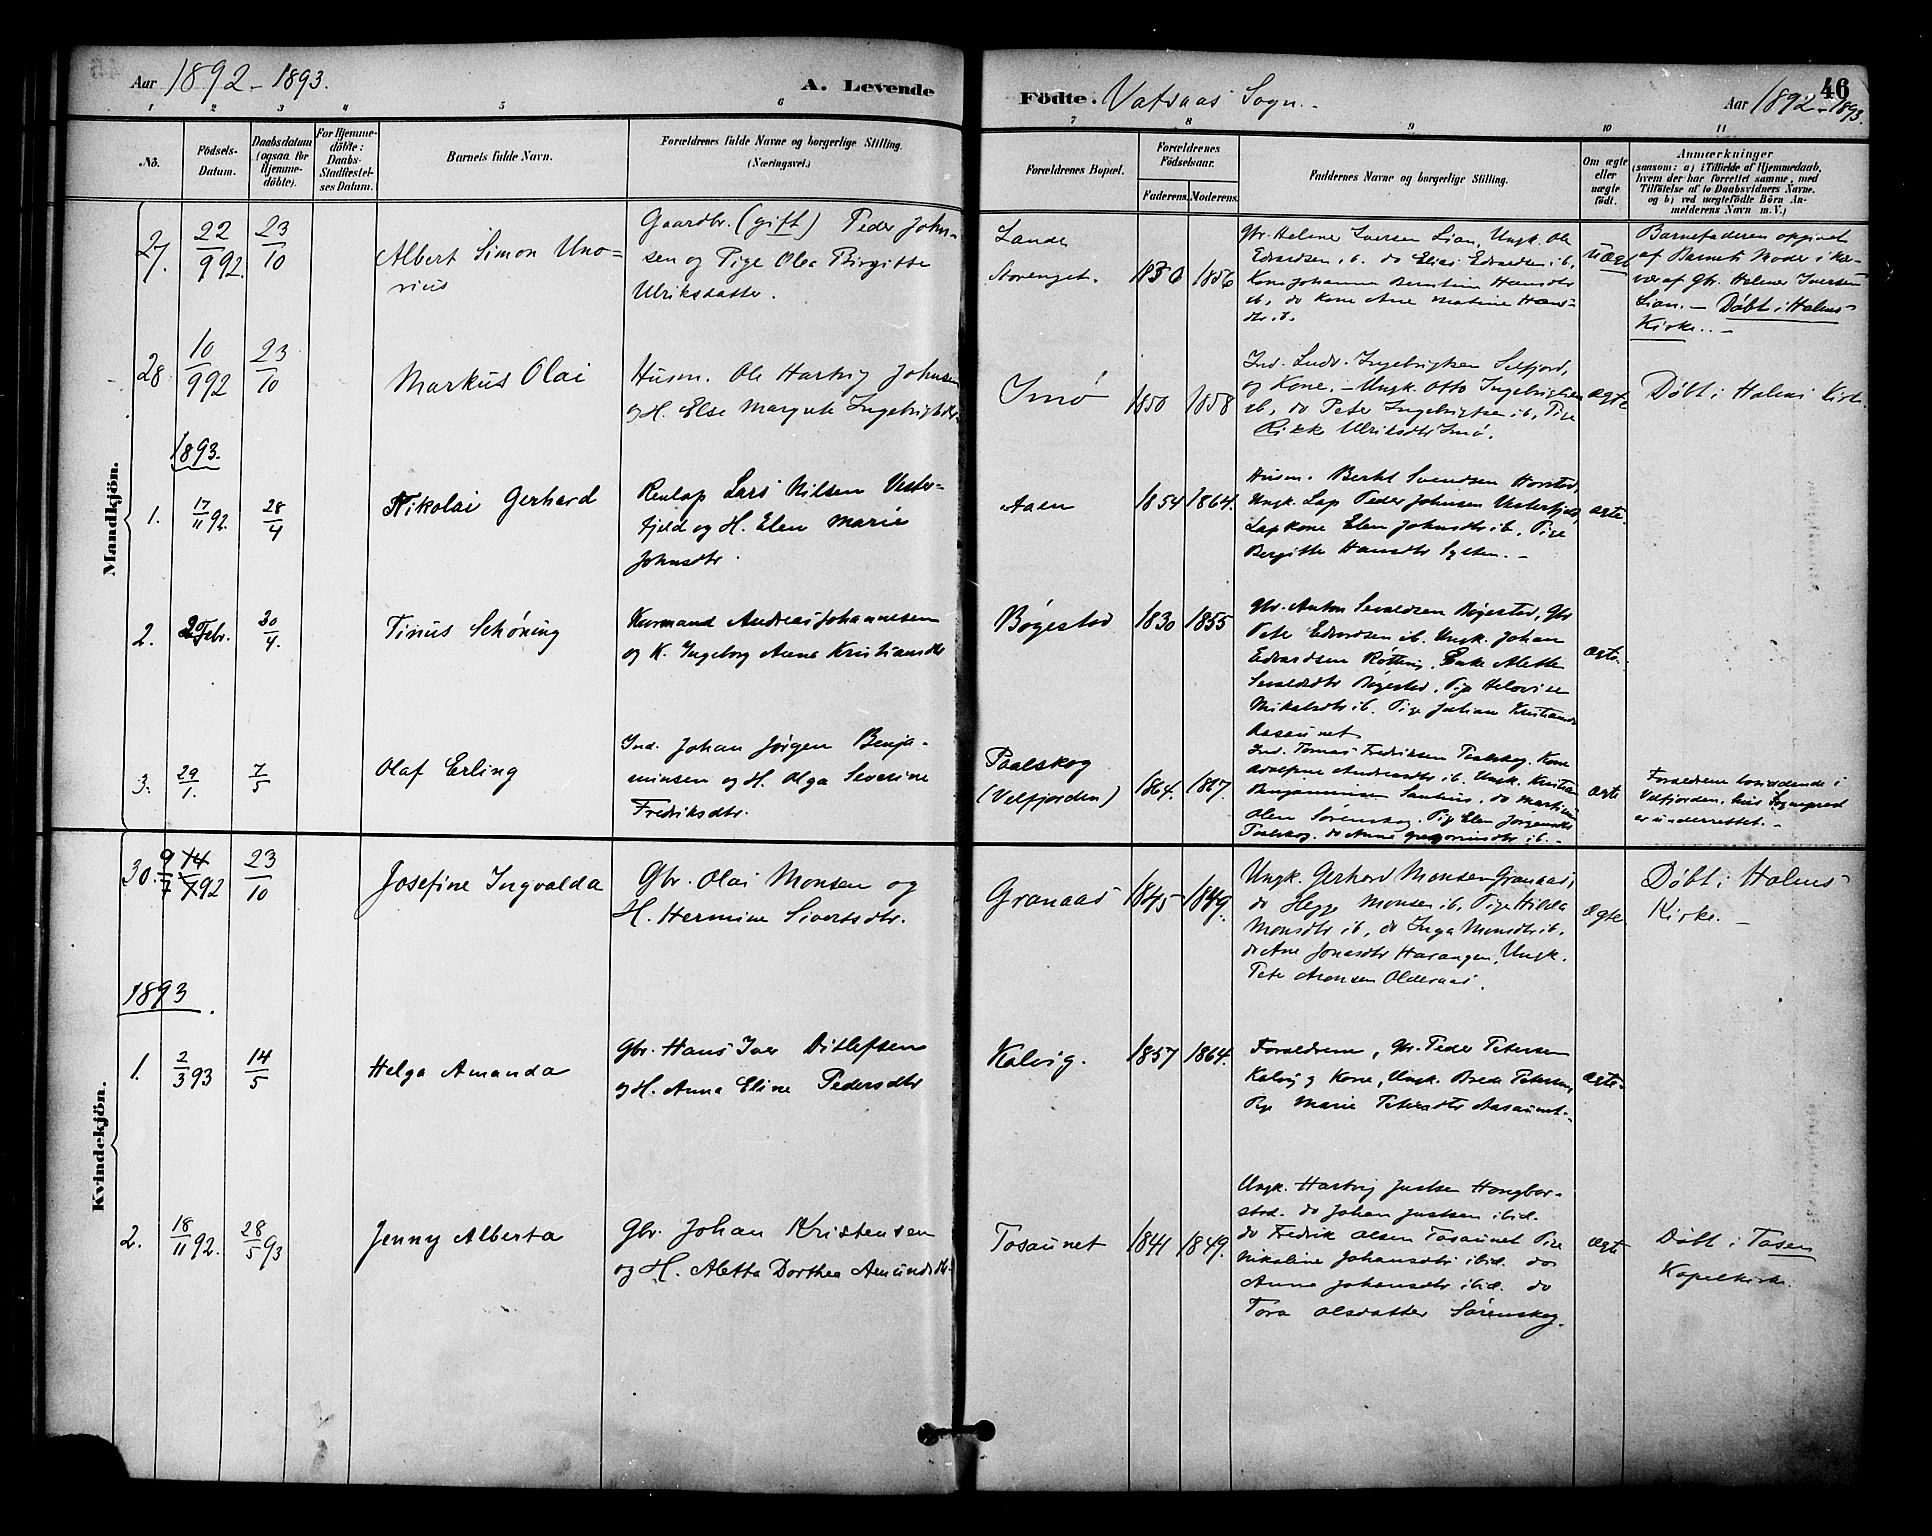 Aar 1892-1893.
A. Levende
1 2 3 4 5 6
No.
Födsels-Datum.
Daabsdatum (ogsaa for Hjemmedöbte).
For Hjemmedöbte: Daabs-Stadfæstelses Datum.
Barnets fulde Navn.
Forældrenes fulde Navne og borgerlige Stilling.
(Næringsvei.)
Födte. Vatsaas Sogn.
46
Aar 1892-1893.
7 8 9 10 11
Forældrenes Bopæl.
Forældrenes Födselsaar.
Faderens. Moderens.
Faddernes Navne og borgerlige Stilling.
Om ægte eller uægte født.
Anmærkninger
(saasom: a) i Tilfælde af Hjemmedaab,
hvem der har forrettet samme, med
Tilföielse af to Daabsvidners Navne.
og b) ved uægtefödte Börn Anmelderens Navn m.V.)
Mandkjön.
27. 22/9 92. 23/10
Albert Simon Uno-
rius
Gaardbr. (gift) Peder John-
sen og Pige Olea Birgitte
Ulriksdatter.
Lande
Storenget.
1850 1856
Gbr. Helmer Iversen Lian, Ungk. Ole
Edvardsen, ib. do Elias Edvardsen ib,
Kone Johanna Hansdtr
ib, do Kone Ane Martine Hans-
dtr. ib.
uægte
Barnefaderen opgivet
af Barnets Moder i Nær-
vær af Gbr. Helmer Iversen
Lian. - Døbt i Holms
Kirke. -
28. 10/9 92 23/10
Markus Olai
Husm. Ole Hartvig Johnsen
og H. Else Margrete Ingebrigtsdtr.
Imø
1850 1858
Ind. Ludv. Ingebrigtsen Selfjord,
og Kone. - Ungk. Otto Ingebrigtsen
ib, do Peter Ingebrigtsen ib, Pige
Rikke Ulriksdtr Imø.
ægte
Døbt i Holms Kirke
1893.
1. 17/11 92. 28/4
Nikolai Gerhard
Renlap Lars Nilsen Vester-
fjeld og H. Elen Marie
Johnsdtr.
Aaen
1854 1864.
Husm. Bertel Svendsen Horsted,
Ungk. Lap Peder Johnsen Vesterfjeld,
Lapkone Elen Johnsdtr ib. Pige
Bergitte Hansdtr Sylten. -
ægte.
2. 2 Febr. 30/4.
Tinus Schøning
Kurmand Andreas Johannesen
og K. Ingeborg Anna Kristiansdtr
Bøgestad
1830 1855
Gbr. Anton Sevaldsen Bøgestad, Gbr
Peter Edvardsen ib. Ungk. Johan
Edvardsen Røtting. Enke Alette
Sevaldsdtr Bøgestad, Pige Helovise
Mikalsdtr ib. Pige Juliane Kristiansd
Aasaunet
ægte.
3. 29/1. 7/5
Olaf Erling
Ind. Johan Jørgen Benja-
minsen og H. Olga Severine
Fredriksdtr.
Paalskog
(Velfjorden)
1864. 1867.
Ind. Tomas Fredriksen Paalskog. Kone
Adolfine Andreasdtr ib. Ungk. Kristian
Benjaminsen do Martinus
Olsen Sørenskog. Pige Elen Jørgensdtr
Paalskog. do Anne Gregoriusdtr ib. -
ægte
Forældrene boende i
Velfjorden, hvis Sognepræst
er underrettet. -
Kvindekjön.
30. 9/7 14/7 92 23/10
Josefine Ingvalda
Gbr. Olai Monsen og
H. Hermine Sivertsdtr.
Granaas
1845 1849.
Ungk. Gerhard Monsen Granaas,
do Hegge Monsen ib, Pige Hilda
Monsdtr ib, do Inga Monsdtr ib.
do Ane Jonasdtr Harangen, Ungk.
Peter Aronsen Olderaas.
ægte
Døbt i Holms
Kirke. -
1893.
1. 2/3 93 14/5
Helga Amanda
Gbr. Hans Iver Ditlefsen
og H. Anna Eline Pedersdtr
Kalvig.
1857 1864.
Forældrene, Gbr. Peder Petersen
Kalvig og Kone, Ungk. Brede Petersen,
Pige Marie Petersdtr Aasaunet.
ægte.
2. 18/11 92. 28/5 93
Jenny Alberta
Gbr. Johan Kristensen
og H. Aletta Dorthea Amundsdtr.
Tosaunet
1841 1849.
Ungk. Hartvig Justsen Hongbar-
stad. do Johan Justsen ibid.
do Fredrik Olsen Tosaunet Pige
Nikoline Johansdtr ibid. do
Anna Johansdtr ibid. do
Tora Olsdatter Sørenskog.
ægte
Døbt i Tosen
Kapelkirke.